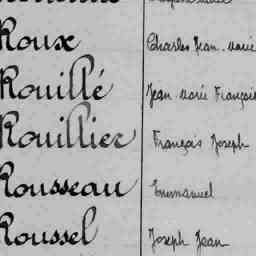 Roux Charles Jean Marie
Rouillé Jean Marie François
Rouillier François Joseph
Rousseau Emmanuel
Roussel Joseph Jean